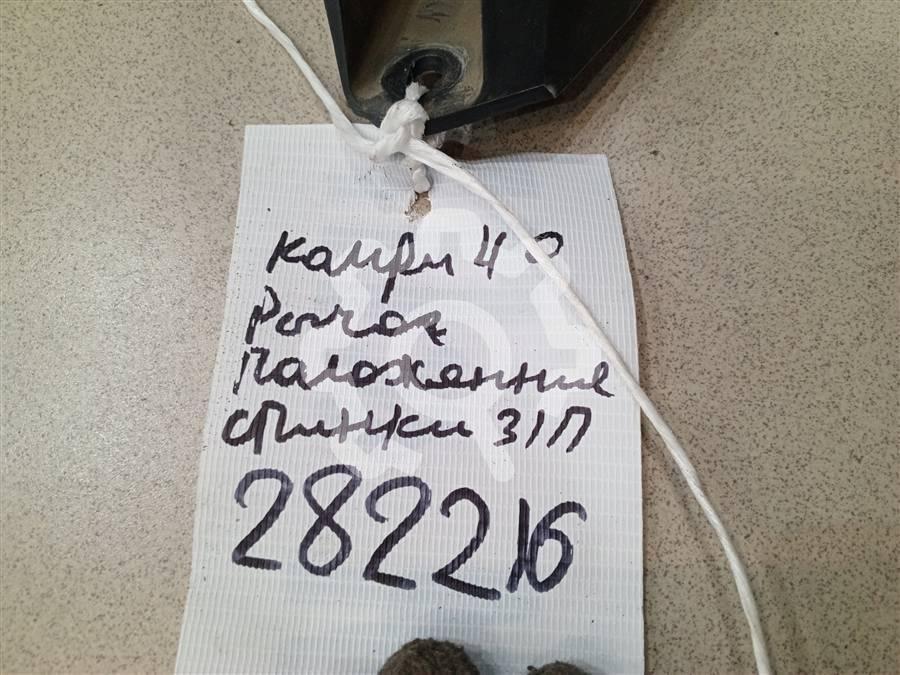 Камри 40
Рычаг
Положенния
спинки З/П
282216